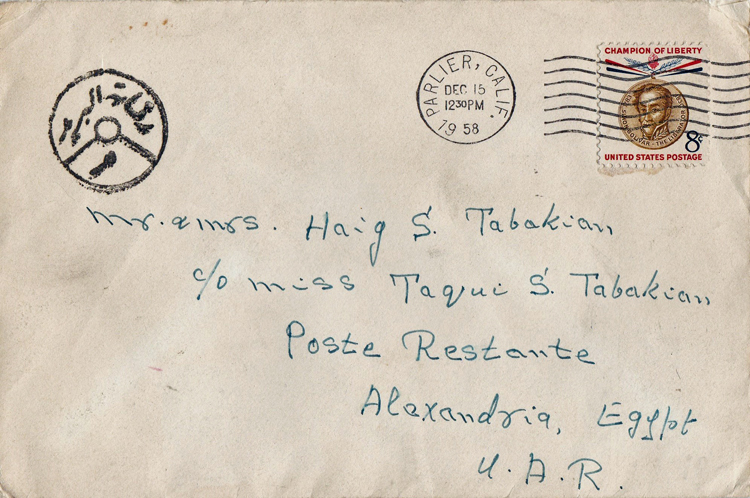 CHAMPION OF LIBERTY
SIMON BOLIVAR - THE LIBERATOR
8¢
UNITED STATES POSTAGE
PARLIER, CALIF.
DEC 15
12 30 PM
1958
رقابة البريد
Mr. & Mrs. Haig S. Tabakian
c/o Miss Taqui S. Tabakian
Poste Restante
Alexandria, Egypt
U. A. R.